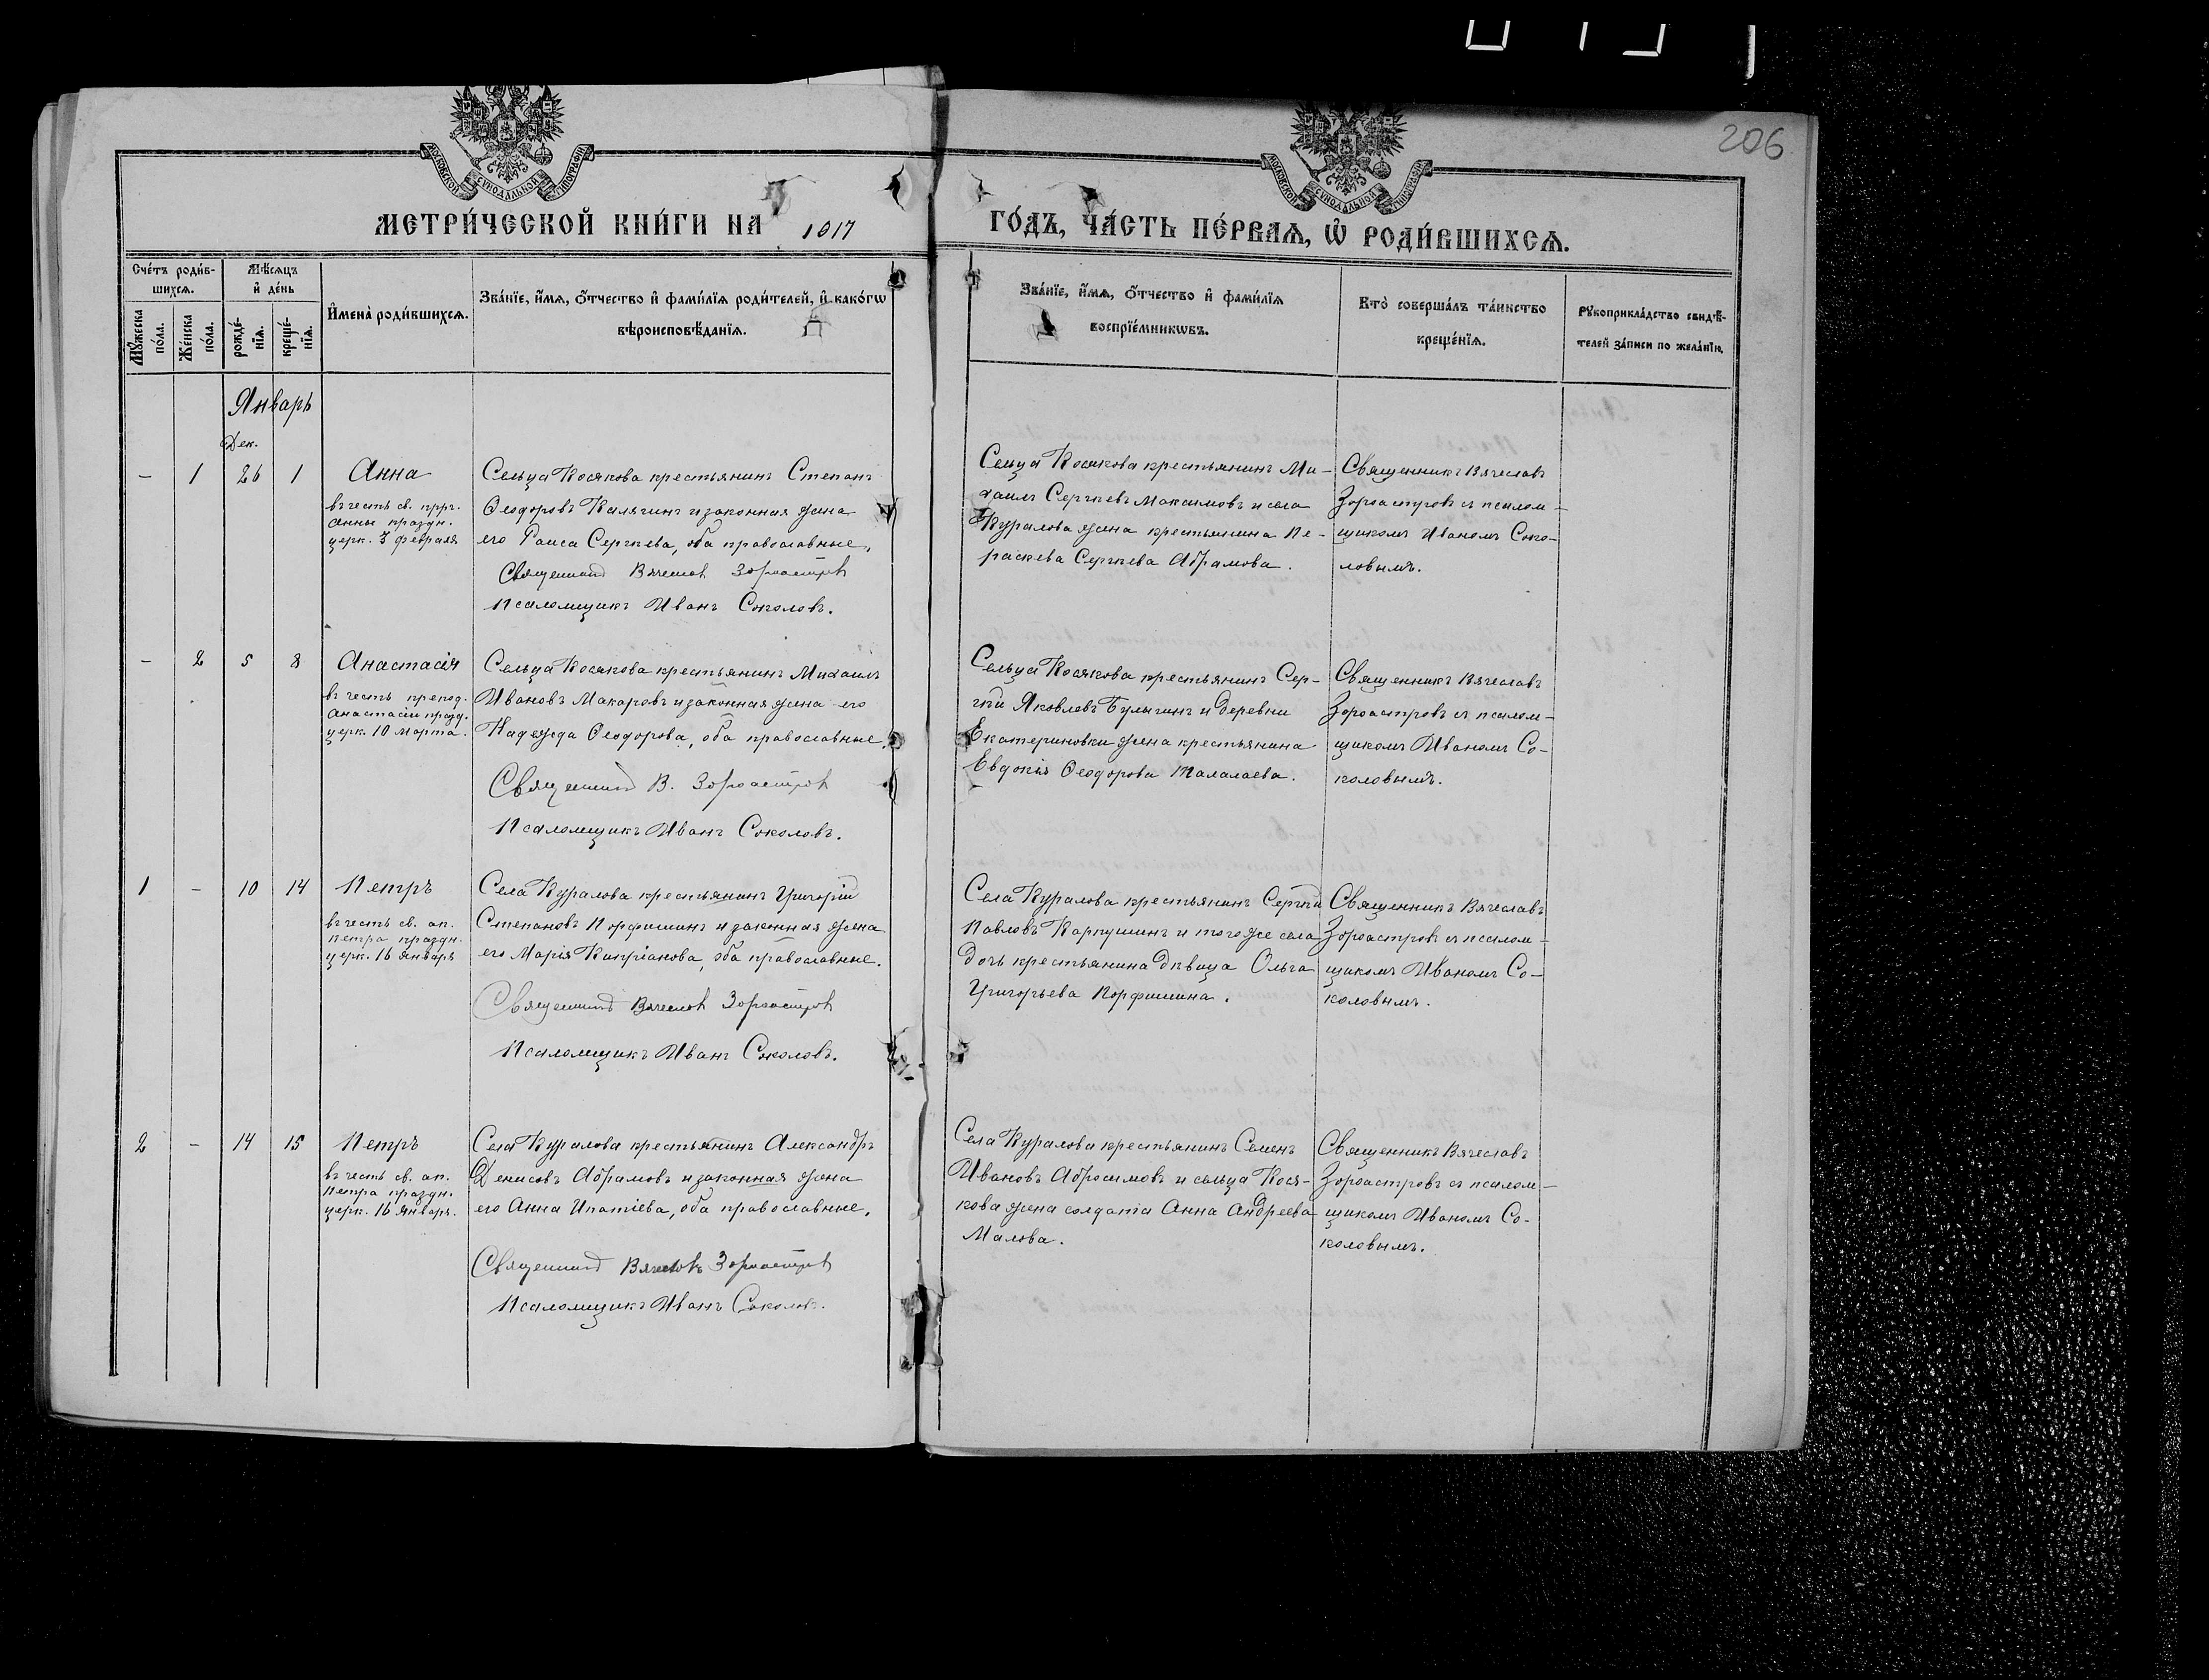 206
МОСКОВСКОЙ СѴНОДАЛЬНОЙ ТИПОГРАФІИ
МОСКОВСКОЙ СѴНОДАЛЬНОЙ ТИПОГРАФІИ
МЕТРИ́ЧЕСКОЙ КНИ́ГИ НА 1917 ГО́ДЪ, ЧА́СТЬ ПЕ́РВАѦ, Ѿ РОДИ́ВШИХСѦ.
Сче́тъ роди́вшихсѧ.
Мꙋ́жеска по́ла.
Же́нска по́ла.
Мѣ́сѧцъ и҆ де́нь
рожде́нїѧ.
креще́нїѧ.
И҆мена̀ роди́вшихсѧ.
Зва́нїе, и҆́мѧ, ѻ҆́тчество и҆ фами́лїѧ роди́телей, и҆ како́гѡ
вѣроисповѣ́данїѧ.
Зва́нїе, и҆́мѧ, ѻ҆́тчество и҆ фами́лїѧ
воспрїе́мникѡвъ.
Кто̀ соверша́лъ та́инство
креще́нїѧ.
Рꙋкоприкла́дство свидѣ́-
телей за́писи по жела́нїю.
Январь
Дек.
– 1 26 1 Анна
въ честь св. прр.
Анны праздн.
церк. 3 февраля
Сельца Косякова крестьянинъ Степанъ
Ѳеодоровъ Калягинъ и законная жена
его Раиса Сергѣева, оба православные.
Священникъ Вячеслав Зороастров
Псаломщикъ Иванъ Соколовъ.
Сельца Косякова крестьянинъ Ми-
хаилъ Сергѣевъ Максимовъ и села
Куралова жена крестьянина Пе-
раскева Сергѣева Абрамова.
Священникъ Вячеславъ
Зороастровъ съ псалом-
щикомъ Иваномъ Соко-
ловымъ.
– 2 5 8 Анастасія
въ честь препод.
Анастасіи празд.
церк. 10 марта.
Сельца Косякова крестьянинъ Михаилъ
Ивановъ Макаровъ и законная жена его
Надежда Ѳеодорова, оба православные.
Священникъ В. Зороастров
Псаломщикъ Иванъ Соколовъ.
Сельца Косякова крестьянинъ Сер-
гѣй Яковлевъ Булыгинъ и деревни
Екатериновки жена крестьянина
Евдокія Ѳеодорова Талалаева.
Священникъ Вячеславъ
Зороастровъ съ псалом-
щикомъ Иваномъ Со-
коловымъ.
1 – 10 14 Петръ
въ честь св. ап.
Петра праздн.
церк. 16 января
Села Куралова крестьянинъ Григорій
Степановъ Порфишинъ и законная жена
его Марія Кипріанова, оба православные.
Священникъ Вячеслав Зороастров
Псаломщикъ Иванъ Соколовъ.
Села Куралова крестьянинъ Сергѣй
Павловъ Карпушинъ и того же села
дочь крестьянина дѣвица Ольга
Григорьева Порфишина.
Священникъ Вячеславъ
Зороастровъ съ псалом-
щикомъ Иваномъ Со-
коловымъ.
2 – 14 15 Петръ
въ честь св. ап.
Петра праздн.
церк. 16 январ.
Села Куралова крестьянинъ Александръ
Денисовъ Абрамовъ и законная жена
его Анна Ипатіева, оба православные.
Священникъ Вячеславъ Зороастров
Псаломщикъ Иванъ Соколовъ.
Села Куралова крестьянинъ Семенъ
Ивановъ Абросимовъ и сельца Кося-
кова жена солдата Анна Андреева
Малова.
Священникъ Вячеславъ
Зороастровъ съ псалом-
щикомъ Иваномъ Со-
коловымъ.